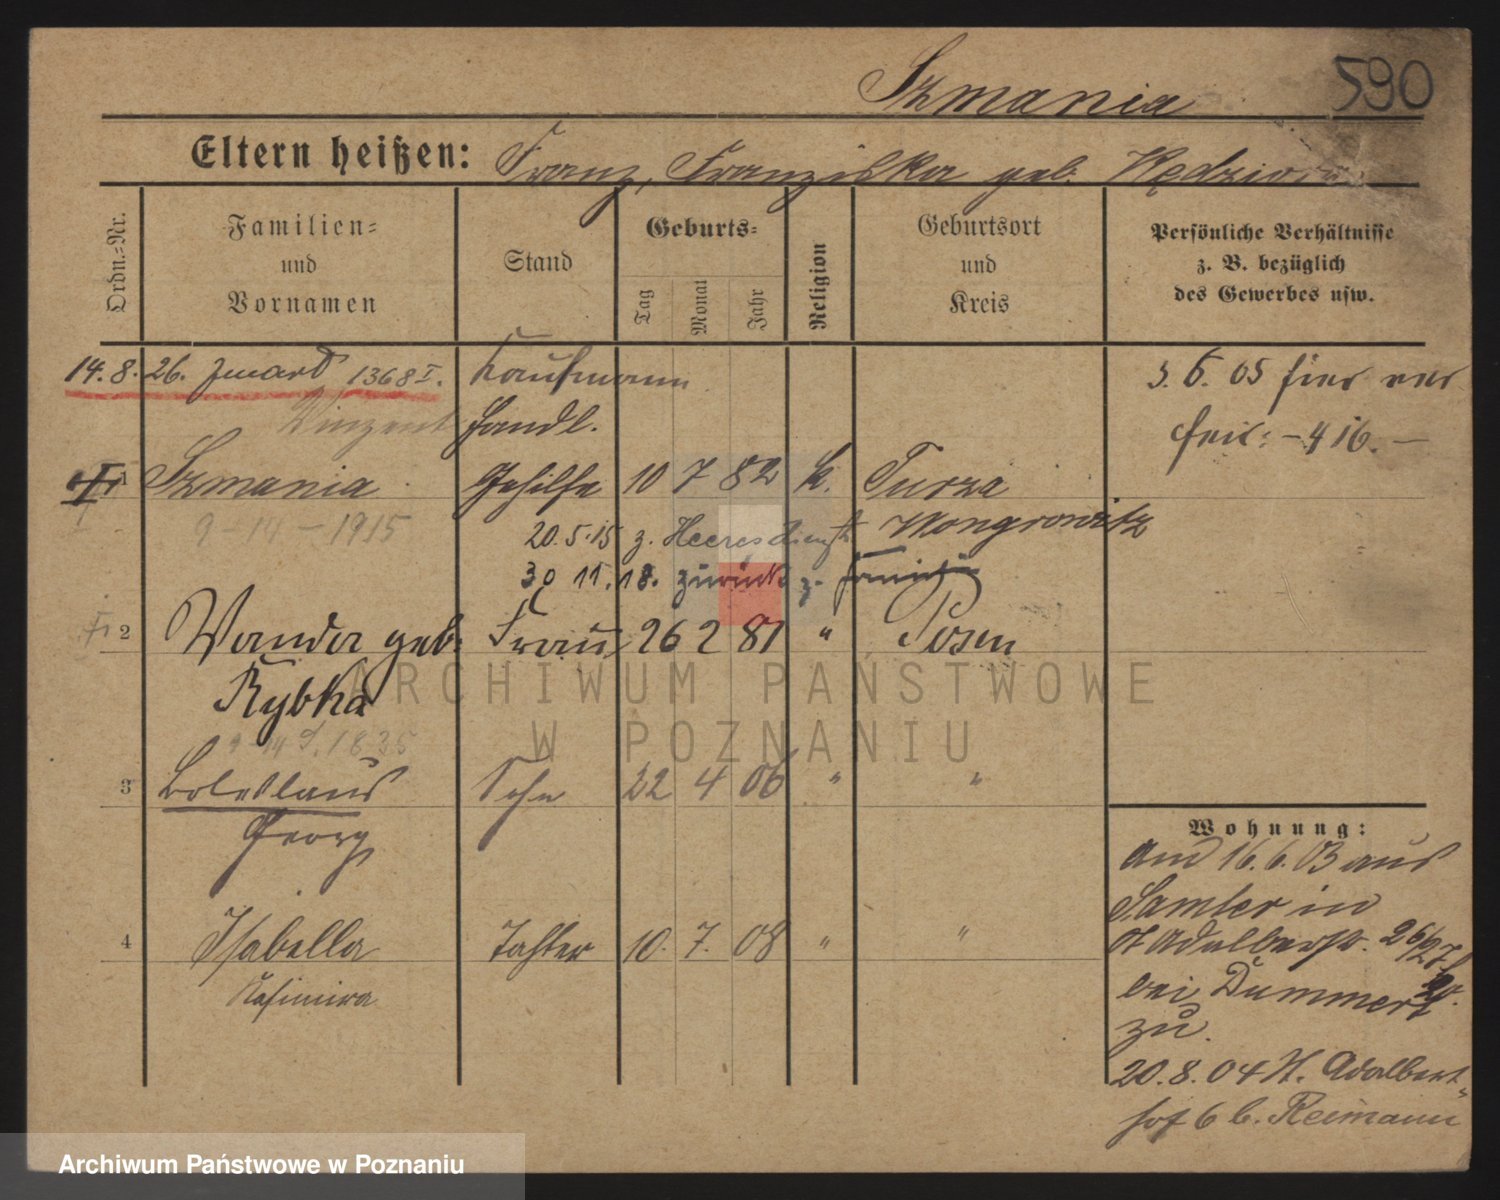 Szmania 590
Eltern heißen: Franz, Franziska geb. Kędziora
Ordn.-Nr.
Familien- und Vornamen
Stand
Geburts-
Tag Monat Jahr
Religion
Geburtsort und Kreis
Persönliche Verhältnisse
z. B. bezüglich
des Gewerbes usw.
14. 8. 26. 1368 I. Kaufmann
5. 6. 05
Vinzent Handl.
416. —
1 Szmania Gehilfe 10 7 82 k. Turza
9 - 14 - 1915
Wongrowitz
20.5.15 z. Heeresdienst
30 11. 18. zurück
2 Wanda geb. Frau 26 2 81 " Posen
Rybka
3 Boleslaus Sohn 22 4 06 " "
Georg
4 Isabella Tochter 10. 7. 08 " "
Kasimira
Wohnung:
16. 6. 03 aus
Samter in
St Adalbertstr. 26/27
bei Dummert
zu.
20. 8. 04 St. Adalbert-
hof 6 b. Reimann
ARCHIWUM PAŃSTWOWE
W POZNANIU
Archiwum Państwowe w Poznaniu